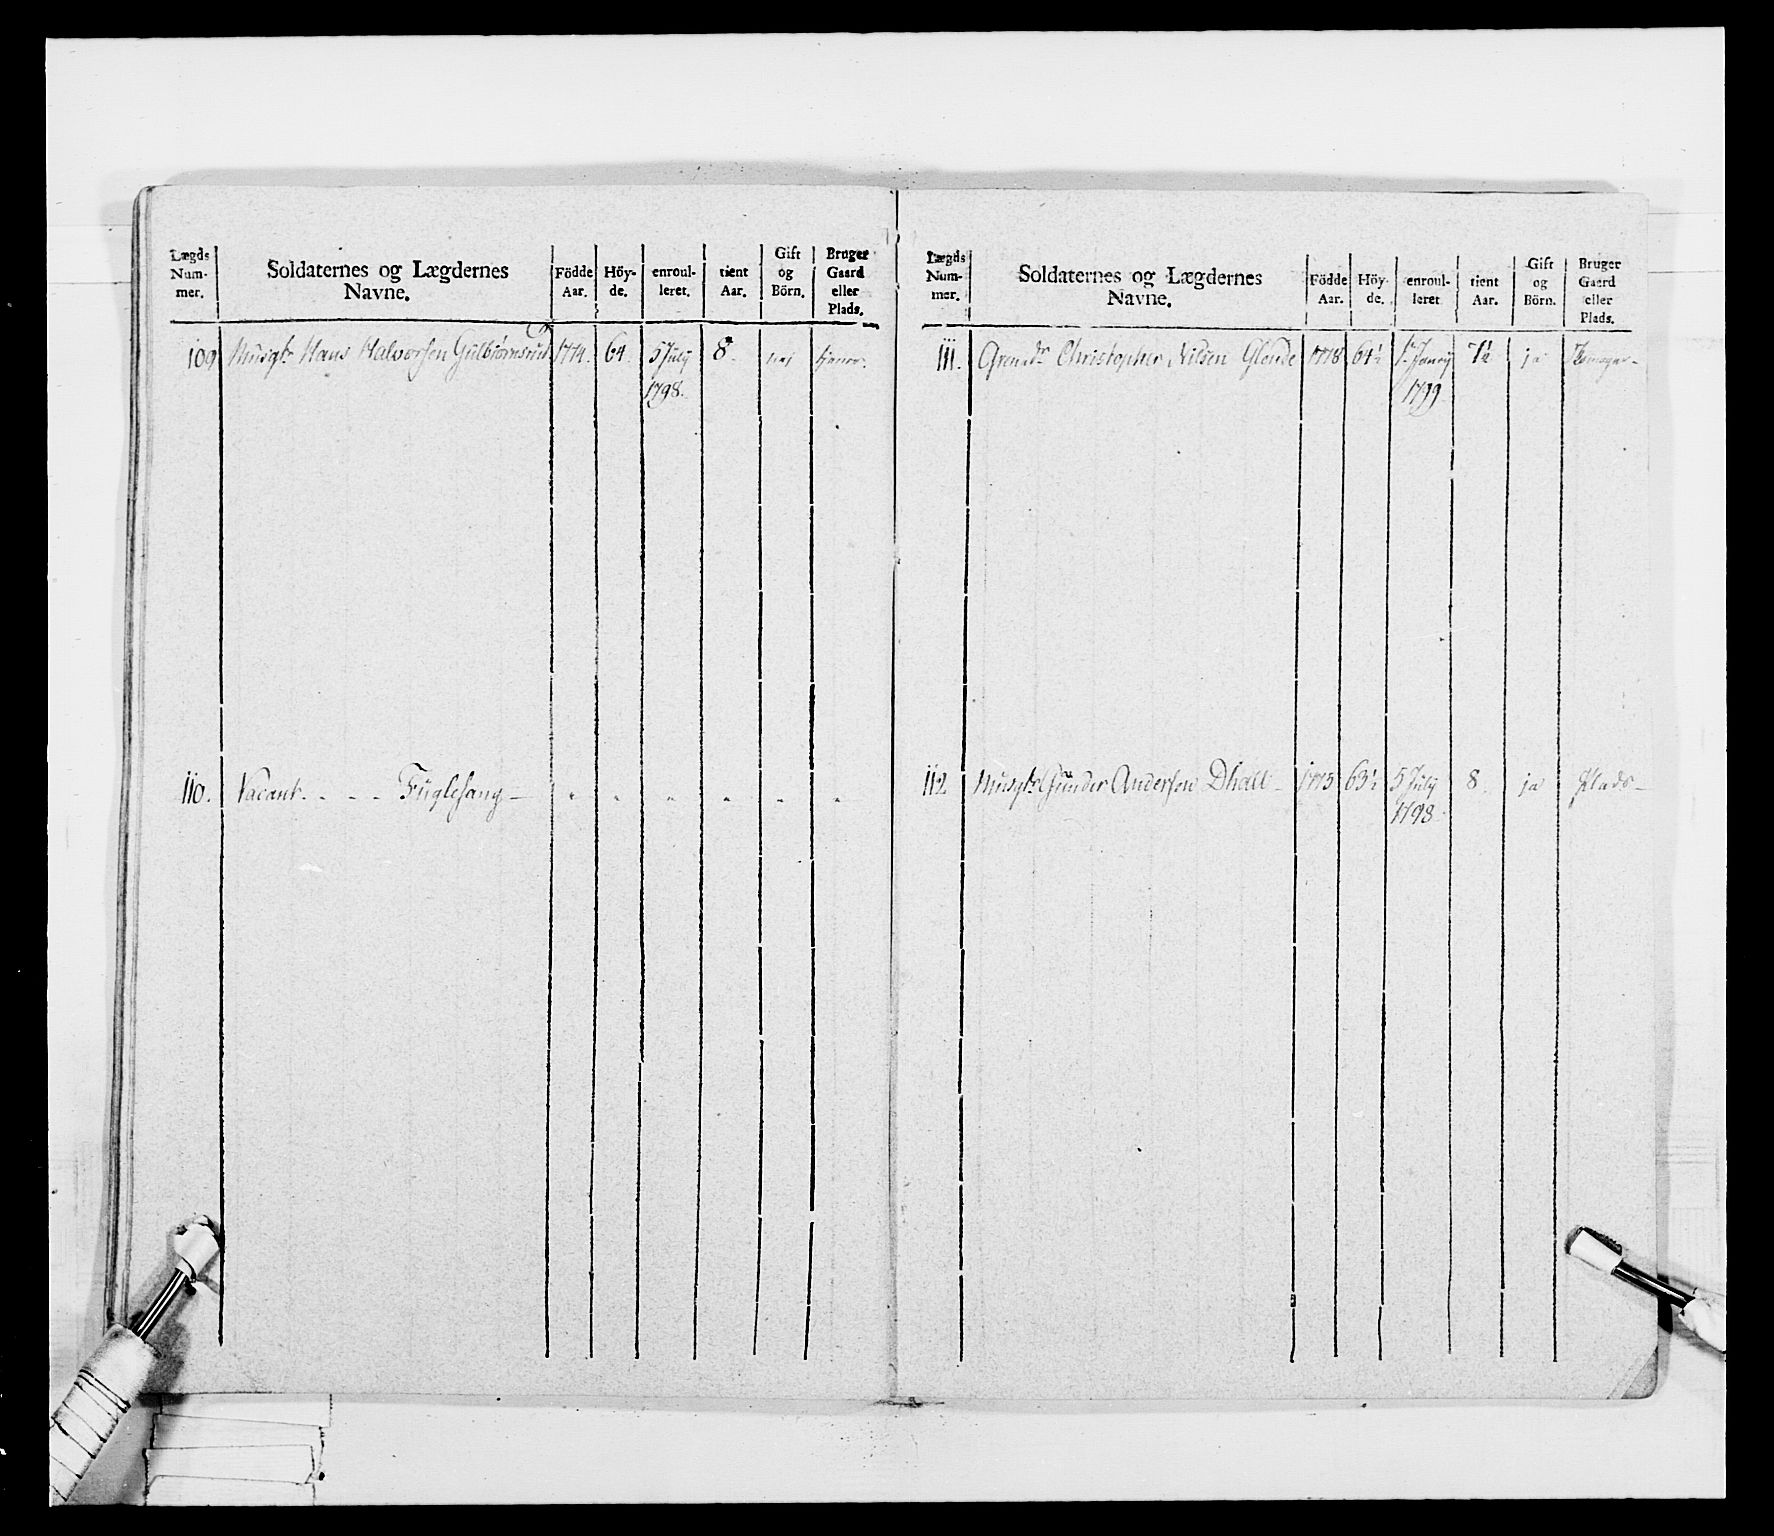 Lægds Num- mer. | Soldaternes og Lægdernes Navne. | Födde Aar. | Höy- de. | enroul- leret. | tient Aar. | Gift og Börn. | Bruger Gaard eller Plads.
109 Musqtr Hans Halvorsen Gulbjørnsrud 1774. 64. 5 July 8. nej tjener.
1798.
110. Vacant. - - - Fuglesang -
Lægds Num- mer. | Soldaternes og Lægdernes Navne. | Födde Aar. | Höy- de. | enroul- leret | tient Aar. | Gift og Börn. | Bruger Gaard eller Plads.
111. Grenadr Christopher Nilsen Glende 1778 64½ 1te Janrij 7½ ja
1799
112 Musqtr Gunder Andersen Dhall - 1775 63½ 5 July 8. ja Plads -
1798.